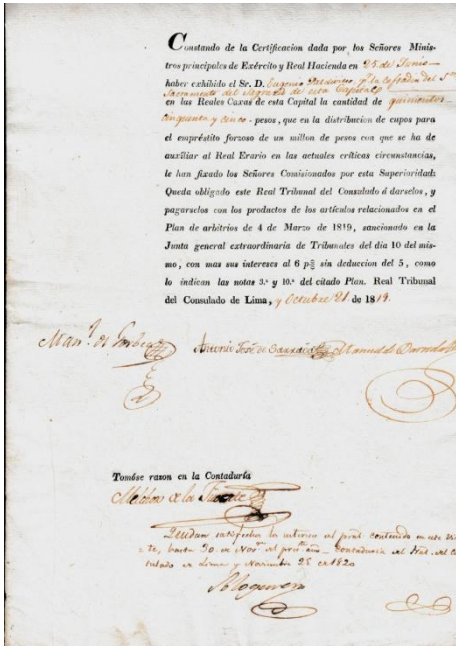 Constando de la Certificacion dada por los Señores Minis-
tros principales de Exército y Real Hacienda en 25 de Junio
haber exhibido el Sr. D. Eugenio y la Cofradia del Smo
Sacramento del Sagrario de esta Capital
en las Reales Caxas de esta Capital la cantidad de quinientos
cinquenta y cinco pesos, que en la distribucion de cupos para
el empréstito forzoso de un millon de pesos con que se ha de
auxiliar al Real Erario en las actuales críticas circunstancias,
le han fixado los Señores Comisionados por esta Superioridad:
Queda obligado este Real Tribunal del Consulado á darselos, y
pagarselos con los productos de los artículos relacionados en el
Plan de arbitrios de 4 de Marzo de 1819, sancionado en la
Junta general extraordinaria de Tribunales del dia 10 del mis-
mo, con mas sus intereses al 6 p% sin deduccion del 5, como
lo indican las notas 3.ª y 10.ª del citado Plan. Real Tribunal
del Consulado de Lima, y Octubre 21 de 1819.
Man.l de Gorbea Antonio José de Sarraoa Manuel de
Tomóse razon en la Contaduría
de la Fuente
Quedan satisfechos los interes al pral contenido en este
hasta 30 de Nov.e del año Contaduria del Tral del Con
sulado de Lima y Noviembre 28 de 1820